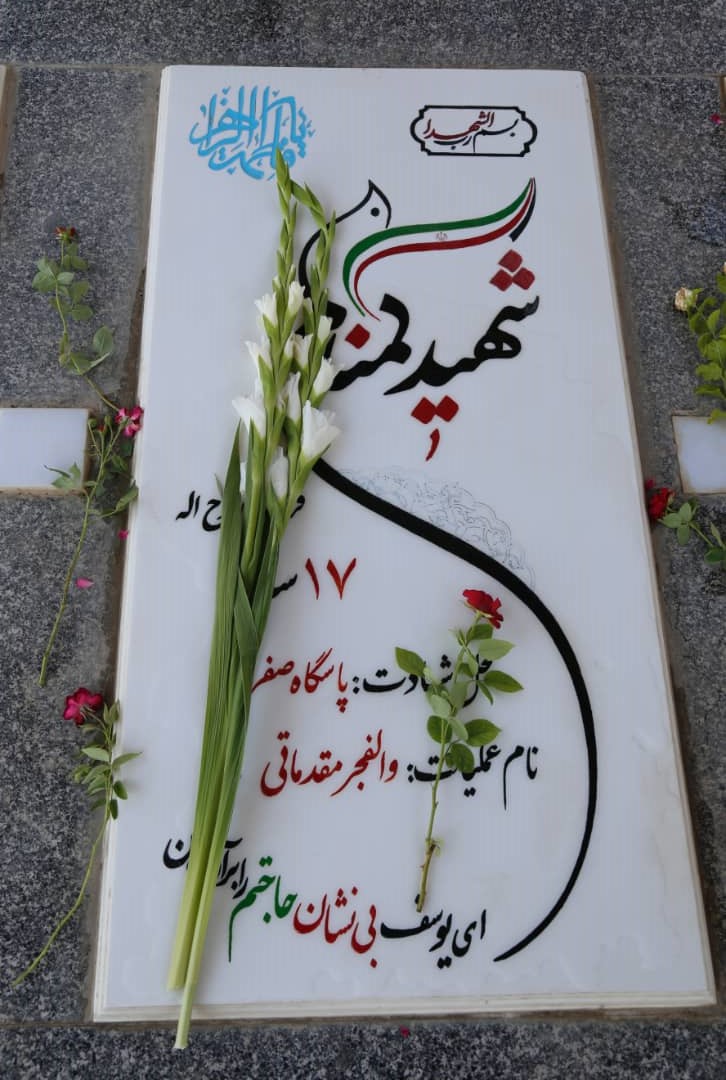 بسم رب الشهدا
یا فاطمة الزهرا
شهید گمنام
فر ح اله
۱۷ سا
محل شهادت: پاسگاه صفر
نام عملیات: والفجر مقدماتی
ای یوسف بی نشان حاجتم را برآر